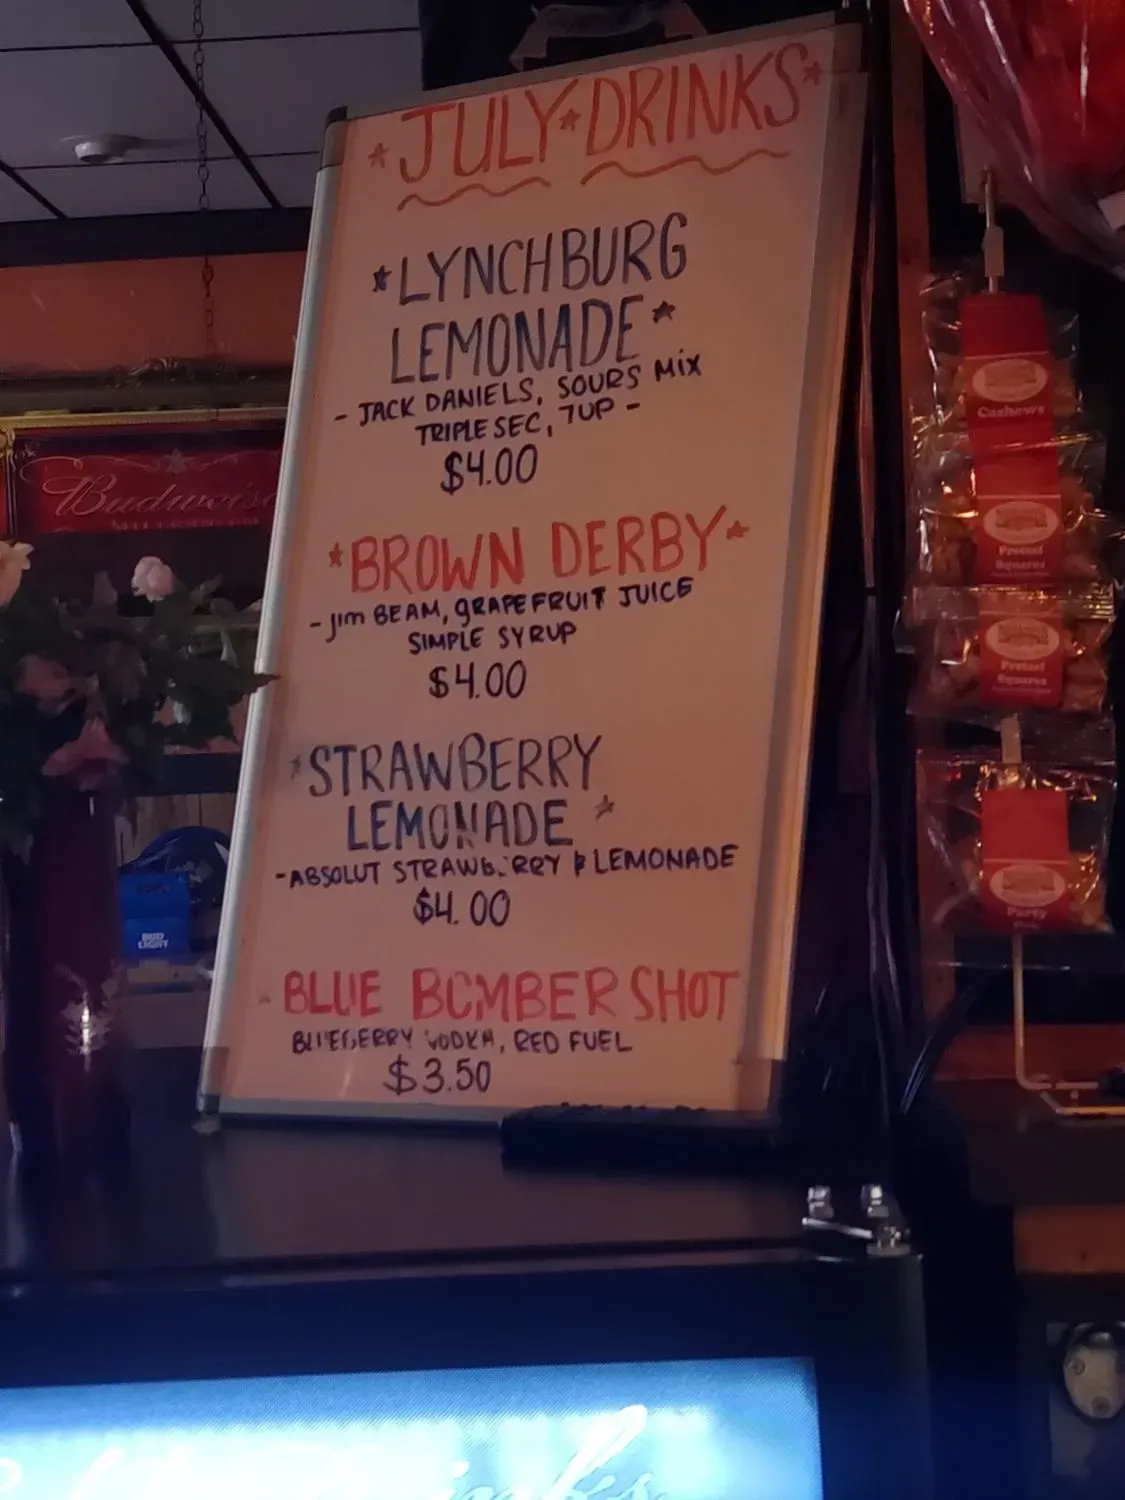 *JULY*DRINKS*
*LYNCHBURG
LEMONADE*
- JACK DANIELS, SOURS MIX
TRIPLE SEC, 7UP -
$4.00
*BROWN DERBY*
- JIM BEAM, GRAPEFRUIT JUICE
SIMPLE SYRUP
$4.00
*STRAWBERRY
LEMONADE*
- ABSOLUT STRAWBERRY & LEMONADE
$4.00
BLUE BOMBER SHOT
BLUEBERRY VODKA, RED FUEL
$3.50
Budweise
BUD
LIGHT
Cashews
Pretzel
Squares
Pretzel
Squares
Party